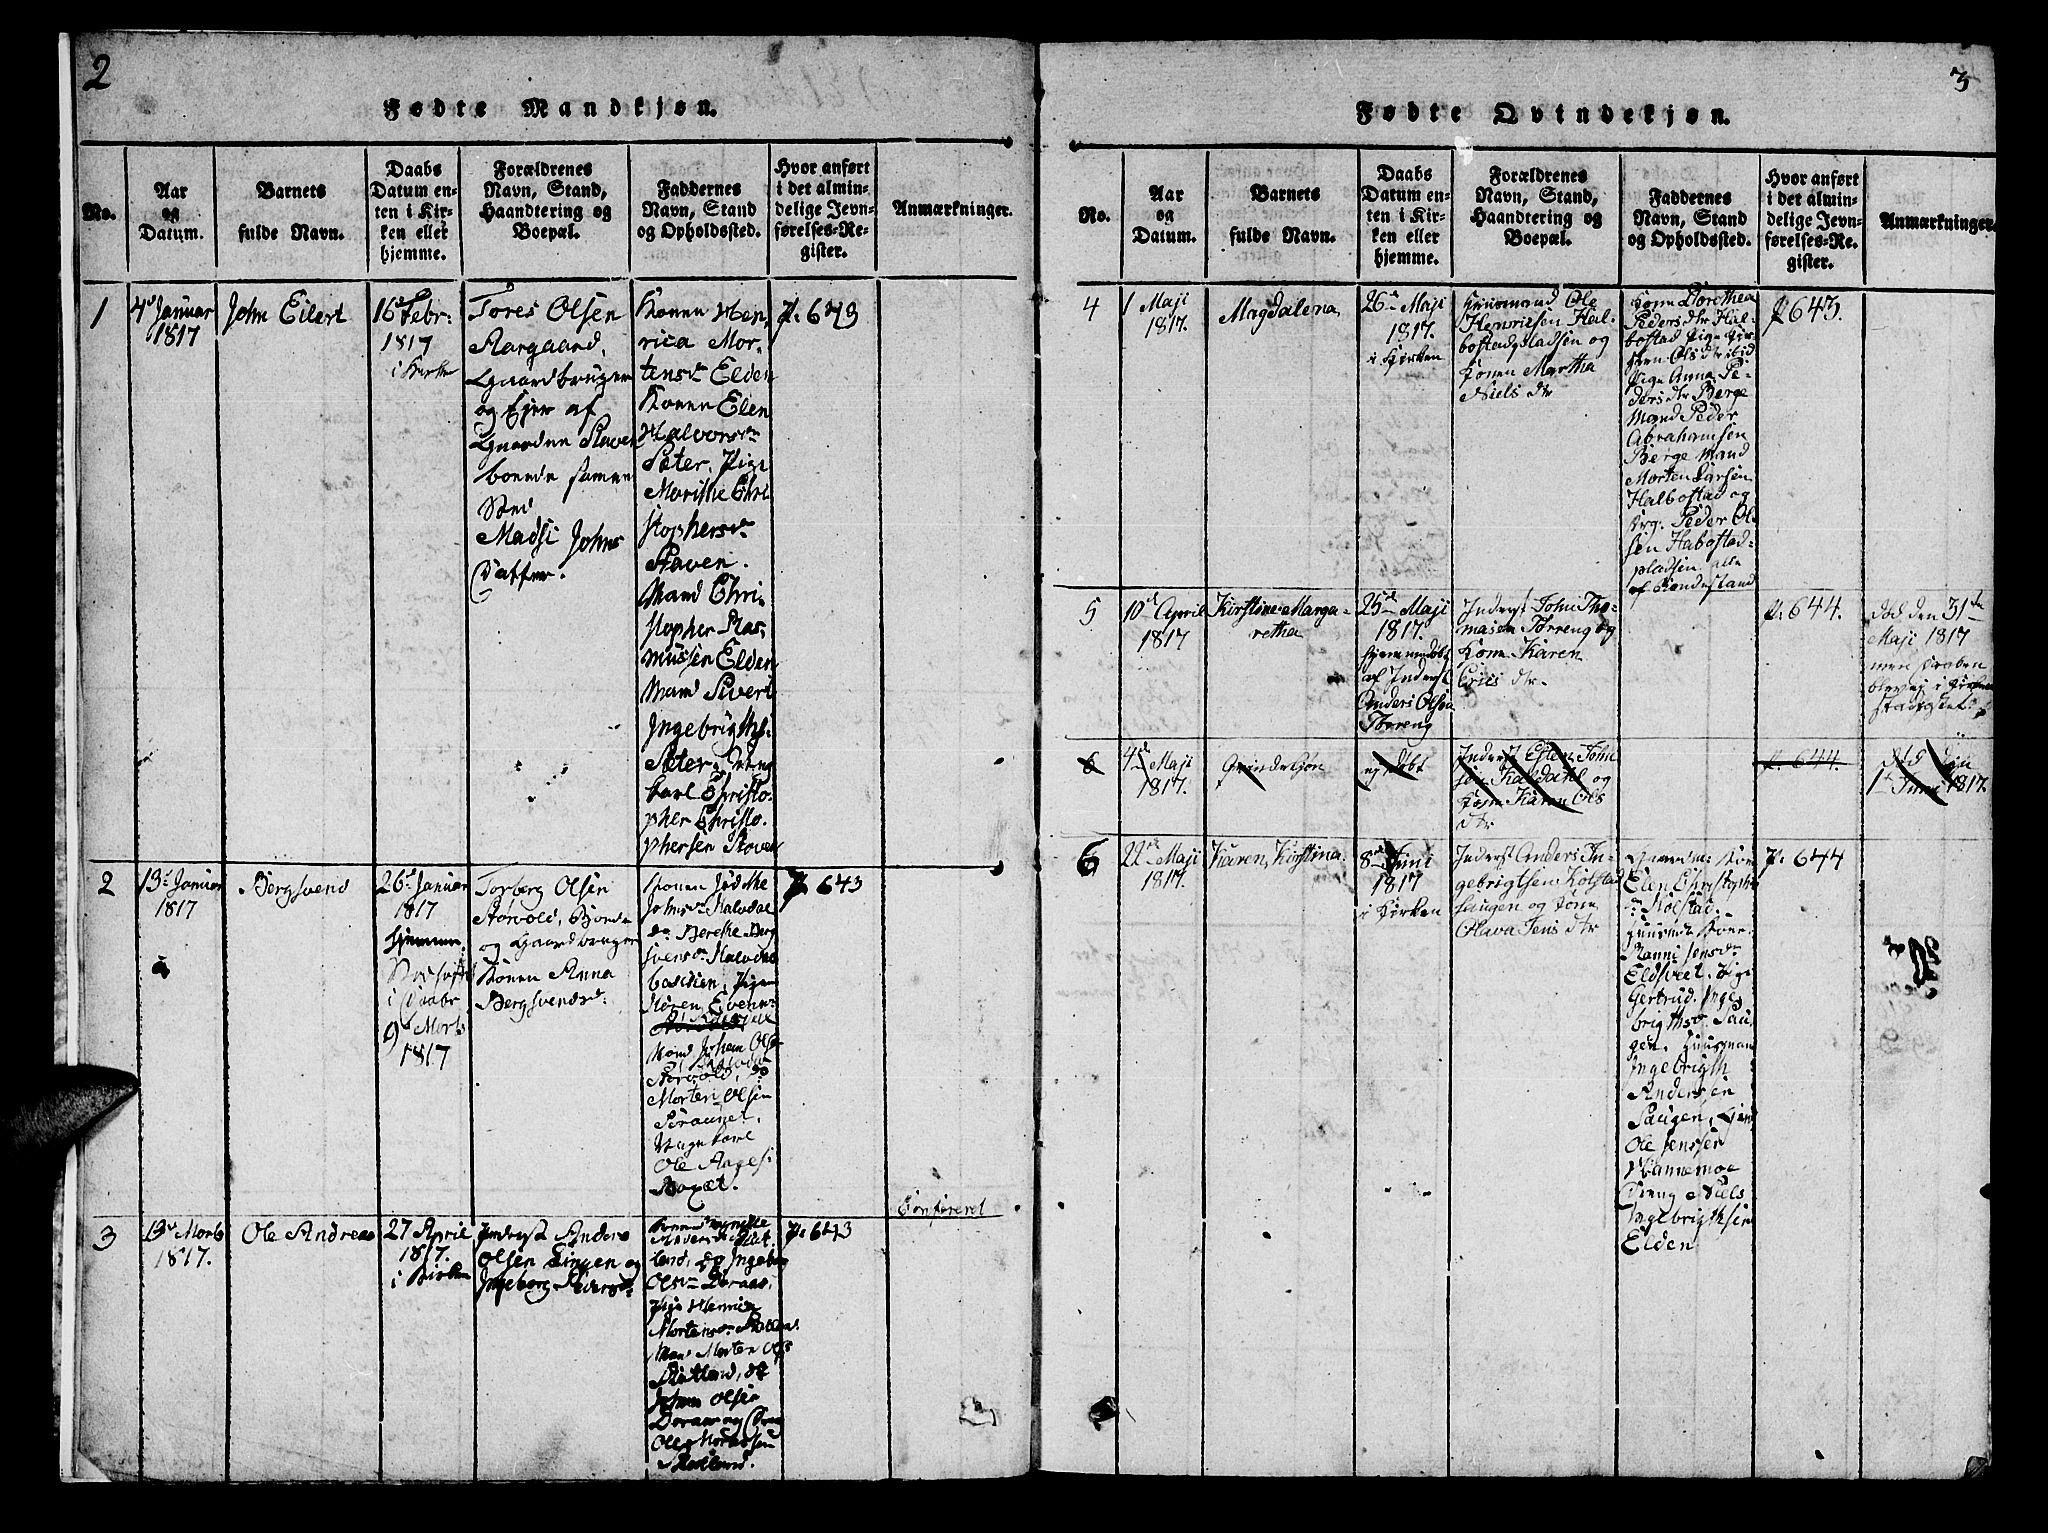 2
Fødte Mandkjøn.
No.
Aar
og
Datum.
Barnets
fulde Navn.
Daabs
Datum en-
ten i Kir-
ken eller
hjemme.
Forældrenes
Navn, Stand,
Haandtering og
Boepæl.
Faddernes
Navn, Stand
og Opholdssted.
Hvor anført
i det almin-
delige Jevn-
førelses-Re-
gister.
Anmærkninger.
1
4d Januar
1817
John Eilert
16d Febr:
1817
i Kirke
Tores Olsen
Aargaard,
Gaardbruger
og Ejer af
Gaarden Staven
boende samme
Sted
Madsi Johns
Datter.
Konen Hen,
rica Mor,
tensdr Elden
Konen Elen
Halvorsdr
Sæter, Pige
Marithe Chri
stophersdr
Staven.
Mand Chri,
stopher Ras,
mussen Elden
Mand Sivert
Ingebrigths:
Sæter,
karl Christo,
pher Christo,
phersen Staven
P. 643
2
13d Januar
1817
Bergsvend
26d Januar
1817
hjemme.
i Daabe
9d Marts
1817
Torberg Olsen
Størvold, Bonde
og Gaardbruger
Konen Anna
Bergsvendsdr
Konen
Johnsdr Halvdal
do Berethe Berg
svensdr Halvdal
Pigen
Mand Johan Olsen
Størvold, do
Morten Olsen
Ole
P. 643
3
13d Marts
1817.
Ole Andreas
27 April
1817.
i Kirken
Inderst Anders
Olsen Lingen og
Ingeborg Pedersdr
do Ingebor
Olsdr Doraas,
Pige Henrica
Mortensdr
Mand Morten Ols
do
Johan Olsen
Doraas og
Ole
P. 643
Conføreret
3
Fødte Qvindekjøn.
No.
Aar
og
Datum.
Barnets
fulde Navn.
Daabs
Datum en-
ten i Kir-
ken eller
hjemme.
Forældrenes
Navn, Stand,
Haandtering og
Boepæl.
Faddernes
Navn, Stand
og Opholdssted.
Hvor anført
i det almin-
delige Jevn-
førelses-Re-
gister.
Anmærkninger.
4
1 Maji
1817.
Magdalena
26de Maji
1817.
i Kirken
Huusmand Ole
Henricsen Hal-
bostadpladsen og
Konen Martha
Niels dtr
Kone Dorothea
Peders dtr Hal-
bostad Pige Kir-
sten Ols dtr ibid
Pige Anna Pe-
ders dtr Berge
Mand Peder
Abrahamsen
Berge Mand
Morten Larsen
Halbostad og
Peder Ol-
sen Habostad-
pladsen, alle
af Bondestand
P. 643.
5
10d April
1817
Kirstine Marga-
retha
25de Maji
1817.
hjemmedøbt
af Inderst
Anders Olsen
Thoreng
Inderst John Tho-
masen Torreng og
Kone Karen
Erics dtr.
P. 644.
død den 31te
Maji 1817
men Daaben
blev ej i Kirken
6
4de Maji
1817.
Qvindekjøn
ey døbt
Inderst Esten John
sen Kaldahl og
Kone Karen Ols
dtr
P. 644.
død den
1te Juni 1817.
6
22de Maji
1817.
Karen, Kirstina
8de Juni
1817
i Kirken
Inderst Anders In-
gebrigtsen Kolstad
haugen og Kone
Olava Jens dtr
Elen Christophe
Kolstad.
Kone
Ranni Jensdr
Pige
Gertrud Inge
brigthsdr Hau
gen. Huusman
Ingebrigth
Andersen
Haugen,
Ole Jenssen
Wannemoe
Dreng Niels
Ingebrigthsen
Elden
P. 644